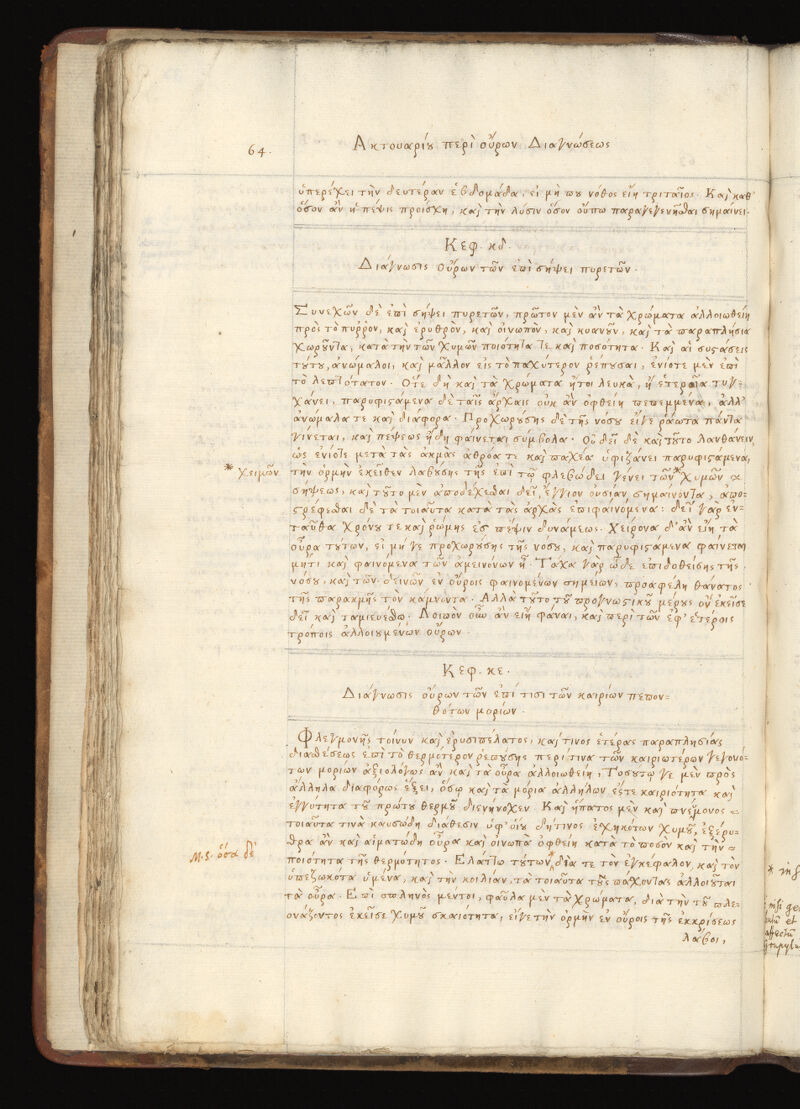 64.
Ακτουαρίου περὶ οὔρων Διαγνώσεως
ὑπερέχει τὴν δευτέραν ἑβδομάδα, εἰ μή που νόθος εἴη τριταῖος. Καὶ καθ'
ὅσον ἂν ἡ πέψις προίσχῃ, καὶ τὴν λύσιν ὅσον οὔπω παραγεγενῆσθαι σημαίνει.
Κεφ. κδ.
Διάγνωσις Οὔρων τῶν ἐπὶ σήψει πυρετῶν.
Συνεχῶν δὲ ἐπὶ σήψει πυρετῶν, πρῶτον μὲν ἂν τὰ χρώματα ἀλλοιωθείη
πρὸς τὸ πυρρὸν, καὶ ἐρυθρὸν, καὶ οἰνωπὸν, καὶ κυανοῦν, καὶ τὰ παραπλήσια
χωροῦντα, κατὰ τὴν τῶν χυμῶν ποιότητα τε καὶ ποσότητα. Καὶ αἱ συστάσεις
τούτου, ἀνώμαλοι, καὶ μᾶλλον εἰς τὸ παχύτερον ῥέπουσαι, ἐνίοτε μὲν ἐπὶ
τὸ λεπτότατον. Ὅτε δὴ καὶ τὰ χρώματα ἤτοι λευκὰ, ἢ ἑτεροῖα τυγ-
χάνει, παρυφιστάμενα δὲ ταῖς ἀρχαῖς οὐκ ἂν ὀφθείη πεπεμμένα, ἀλλ'
ἀνώμαλα τε καὶ διάφορα. Προχωρούσης δὲ τῆς νόσου εἴγε ῥάωτα πάντα
γίνεται, καὶ πέψεως ἤδη φαίνεται σύμβολα. Οὐ δεῖ δὲ καὶ τοῦτο λανθάνειν,
ὡς ἐνίοις μετὰ τὰς ἀκμὰς ἀθρόα τε καὶ παχέα ὑφιζάνει παρυφιστάμενα,
* χειμῶν
τὴν ὁρμὴν ἐκεῖθεν λαβούσης τῆς ἐπὶ τῷ φλεβώδει γένει τῶν* χυμῶν
σήψεως, καὶ τοῦτο μὲν ἀποδέχεσθαι δεῖ, ἔγγιον οὐσίαν σημαίνοντα, ἀπο-
στρέφεσθαι δὲ τὰ τοιαῦτα κατὰ τὰς ἀρχὰς ἐπιφαινόμενα: δεῖ γὰρ ἐν-
ταῦθα χρόνου τε καὶ ῥώμης ἐς πέψιν δυνάμεως. Χείρονα δ' ἂν εἴη τὰ
οὖρα τούτων, εἰ μή γε προχωρούσης τῆς νόσου, καὶ παρυφιστάμενα φαίνεται
μήτι καὶ φαινόμενα τῶν ἀμεινόνων ᾖ. Τάχα γὰρ ὧδε ἐπιδοθείσης τῆς
νόσου, καὶ τῶν δεινῶν ἐν οὔροις φαινομένων σημείων, προσαφέλῃ θάνατος
τῆς παρακμῆς τὸν κάμνοντα. Ἀλλὰ τοῦτο τοῦ προγνωστικοῦ μέρους ὂν ἐκεῖσε
δεῖ καὶ ταμιευέσθω. Λοιπὸν οὖν ἂν εἴη φάναι, καὶ περὶ τῶν ἐφ' ἑτέροις
τρόποις ἀλλοιουμένων οὔρων.
Κεφ. κε.
Διάγνωσις οὔρων τῶν ἐπί τισι τῶν καιρίων πεπον=
θότων μορίων.
Φλεγμονῆς τοίνυν καὶ ἐρυσιπέλατος, καί τινος ἑτέρας παραπλησίας
διαθέσεως ἐπὶ τὸ θερμότερον ῥεπούσης περί τινα τῶν καιριωτέρων γεγονό=
των μορίων ἀξιολόγως ἂν καὶ τὰ οὖρα ἀλλοιωθείη, Τοσούτῳ γε μὲν πρὸς
ἄλληλα διαφόρως ἕξει, ὅσῳ καὶ τὰ μόρια ἀλλήλων ἔς τε καιριότητα καὶ
ἐγγύτητα τοῦ πρώτου θερμοῦ διενήνοχεν. Καὶ ἥπατος μὲν καὶ πνεύμονος
τοιαῦτά τινα καυσώδη διάθεσιν ὑφ' οἵου δήτινος ἐσχηκότων χυμοῦ, ἐξέρυ-
θρα ἂν καὶ αἱματώδη οὖρα καὶ οἰνωπὰ ὀφθείη κατὰ τὸ ποσὸν καὶ τὴν
M.S. ὅσα δὲ
ποιότητα τῆς θερμότητος. Ἐλάττω τούτων διά τε τὸν ἐγκέφαλον, καὶ τὸν
ὑπεζωκότα ὑμένα, καὶ τὴν κοιλίαν, τὰ τοιαῦτα τοὺς πάσχοντας ἀλλοιοῦται
τὰ οὖρα. Ἐπὶ σπληνὸς μέντοι, φαῦλα μὲν τὰ χρώματα, διὰ τὴν τοῦ πλε-
ονάζοντος ἐκεῖσε χυμοῦ σκαιότητα, εἴγε τὴν ὁρμὴν ἐν οὔροις τῆς ἐκκρίσεως
λάβοι,